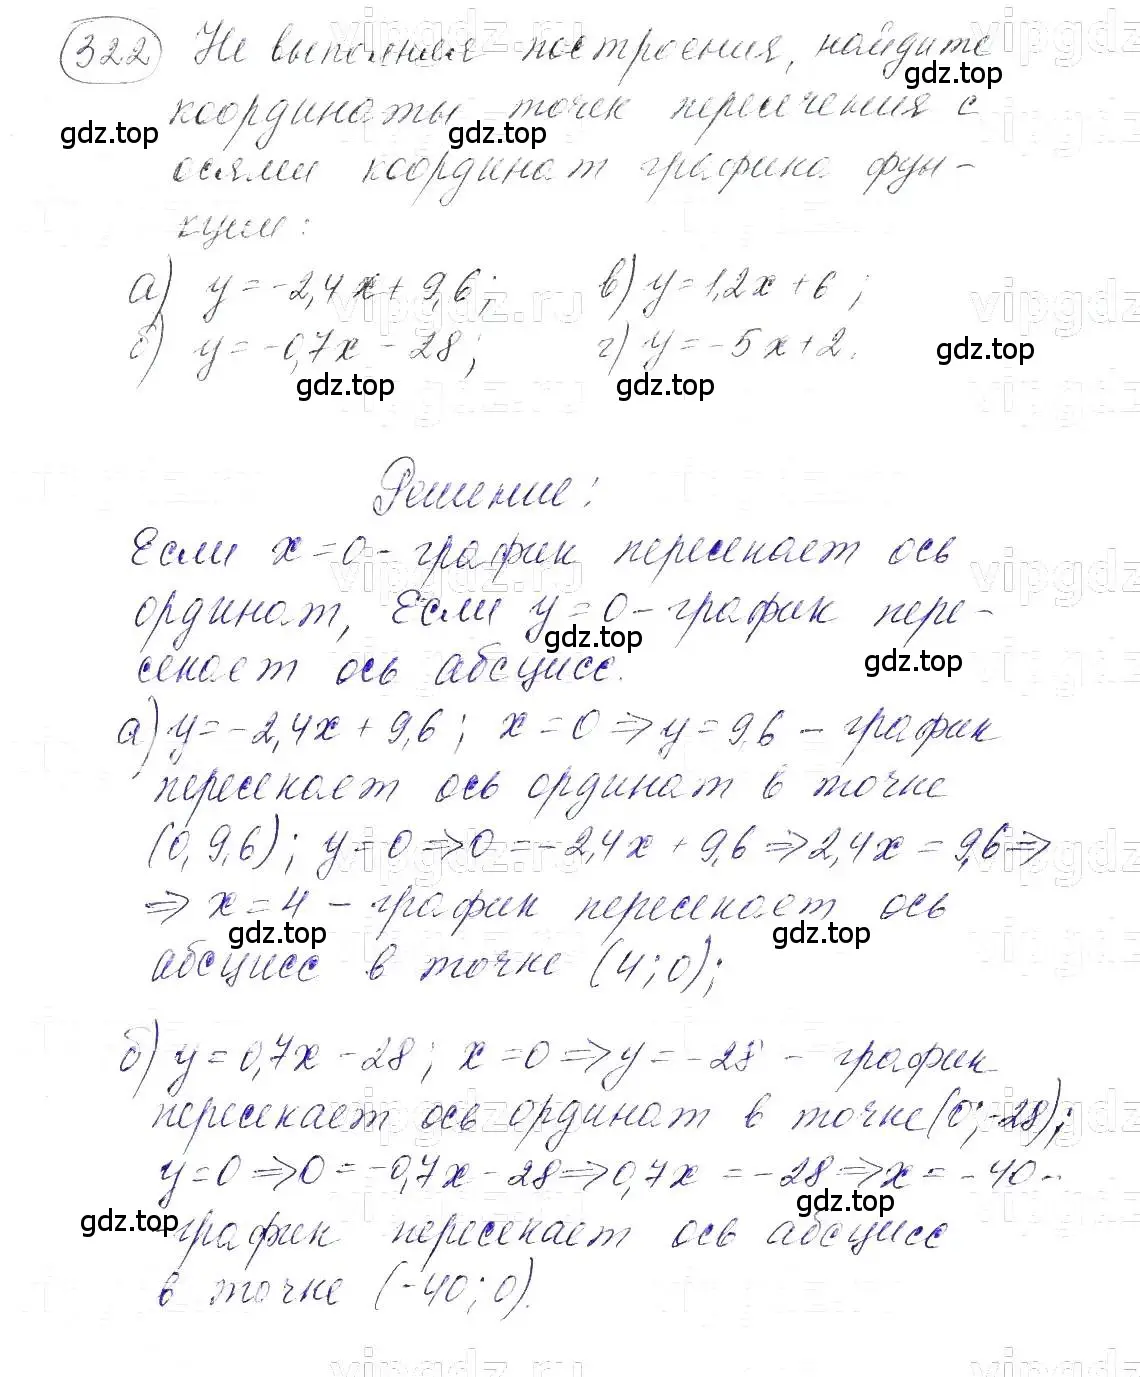 322 Не выполняя построения, найдите
gdz.top
координаты точек пересечения с
gdz.top gdz.top
осями координат графика фун-
кции:
а) y = -2,4x + 9,6; в) y = 1,2x + 6;
б) y = -0,7x - 28; г) y = -5x + 2.
gdz.top
gdz.top gdz.top
Решение:
Если x = 0 - график пересекает ось
ординат, Если y = 0 - график пере-
gdz.top
секает ось абсцисс.
gdz.top
а) y = -2,4x + 9,6; x = 0 ⇒ y = 9,6 - график
пересекает ось ординат в точке
(0, 9,6); y = 0 ⇒ 0 = -2,4x + 9,6 ⇒ 2,4x = 9,6 ⇒
⇒ x = 4 - график пересекает ось
gdz.top gdz.top
абсцисс в точке (4; 0);
б) y = 0,7x - 28; x = 0 ⇒ y = -28 - график
пересекает ось ординат в точке (0; -28);
y = 0 ⇒ 0 = -0,7x - 28 ⇒ 0,7x = -28 ⇒ x = -40 -
gdz.top gdz.top
- график пересекает ось абсцисс
в точке (-40; 0).
vipgdz.ru